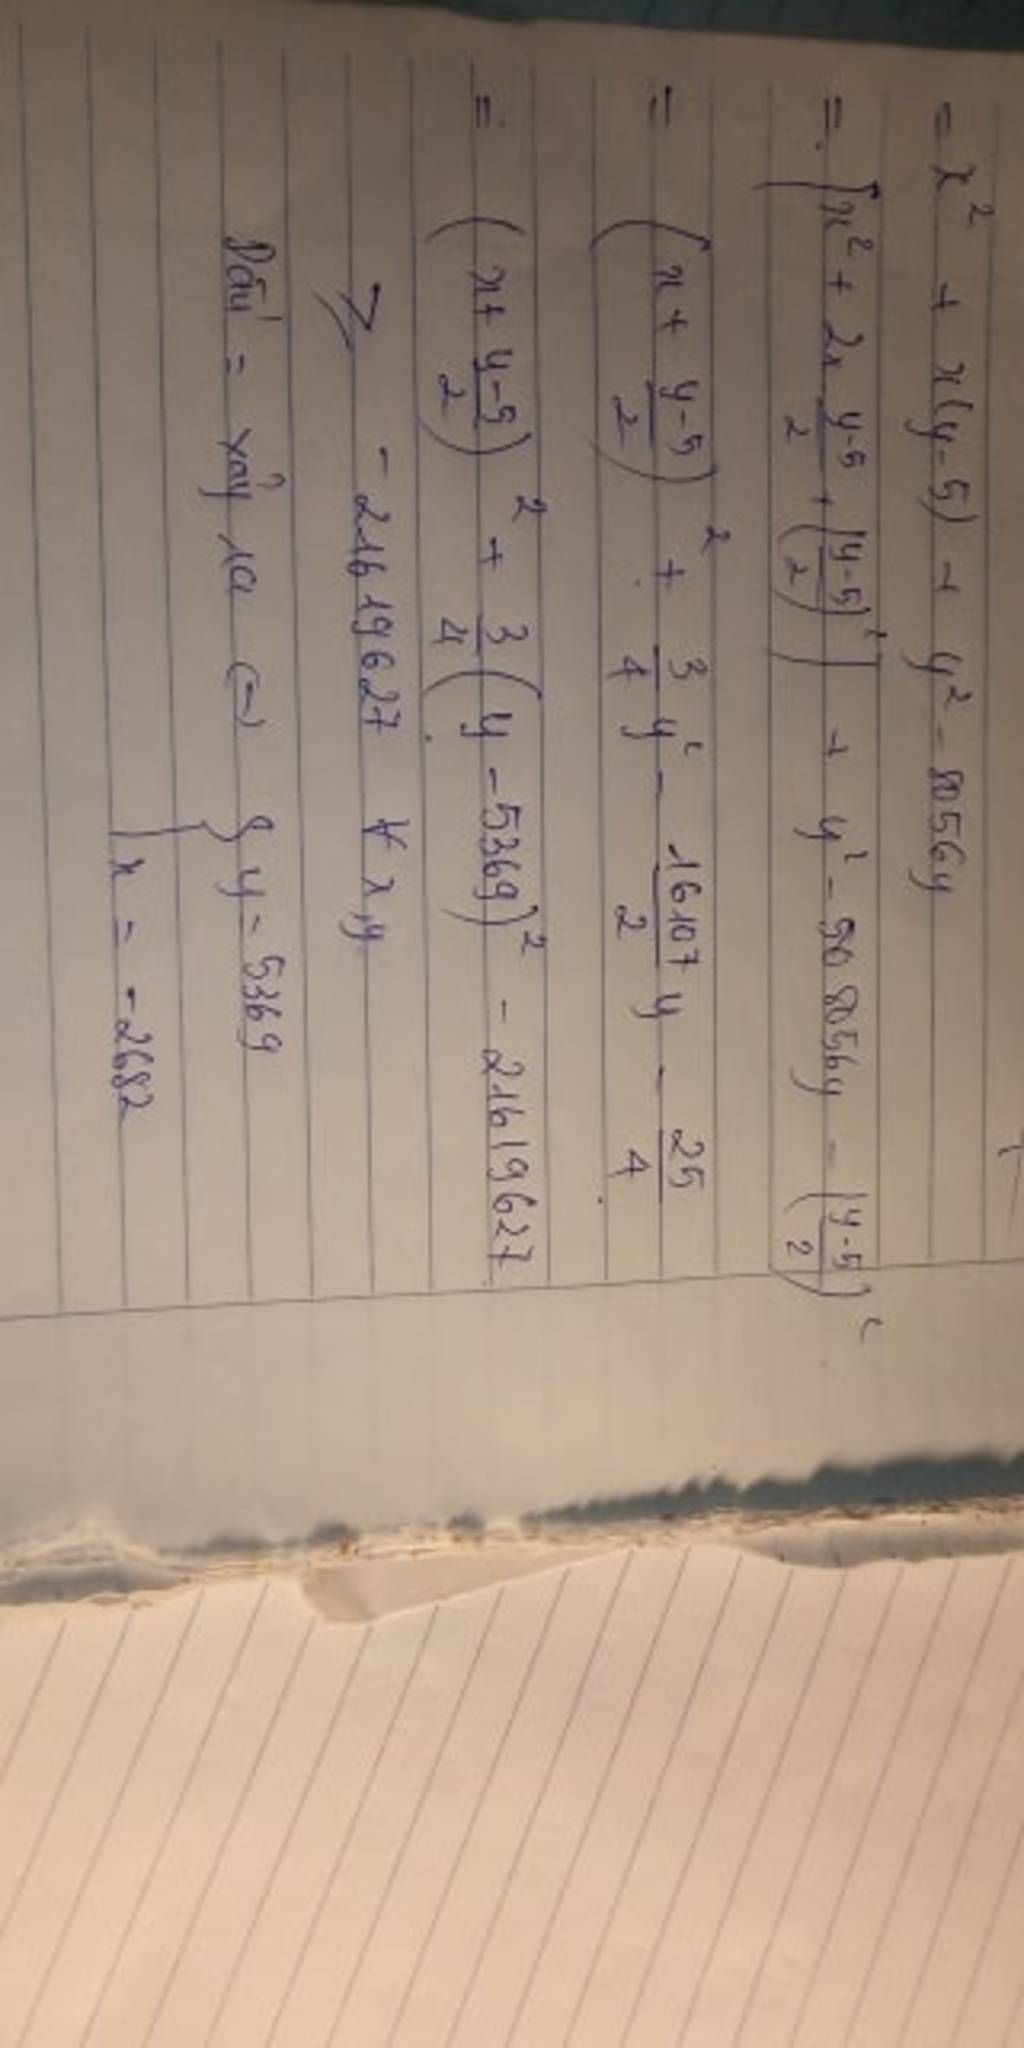 = x² + x(y-5) + y² - 8056y
= [x² + 2x (y-5)/2 + ((y-5)/2)²] + y² - 8056y - ((y-5)/2)²
= (x + (y-5)/2)² + 3/4 y² - 16107/2 y - 25/4
= (x + (y-5)/2)² + 3/4 (y - 5369)² - 21619627
⩾ - 21619627 ∀ x,y
Dấu = xảy ra (=) { y = 5369
x = -2682